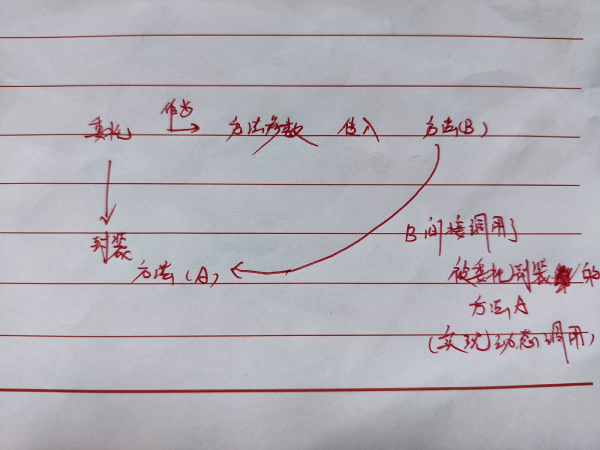 委托 作为 方法参数 传入 方法(B)
封装
方法(A)
B间接调用了
被委托封装的
方法A
(实现)动态调用,